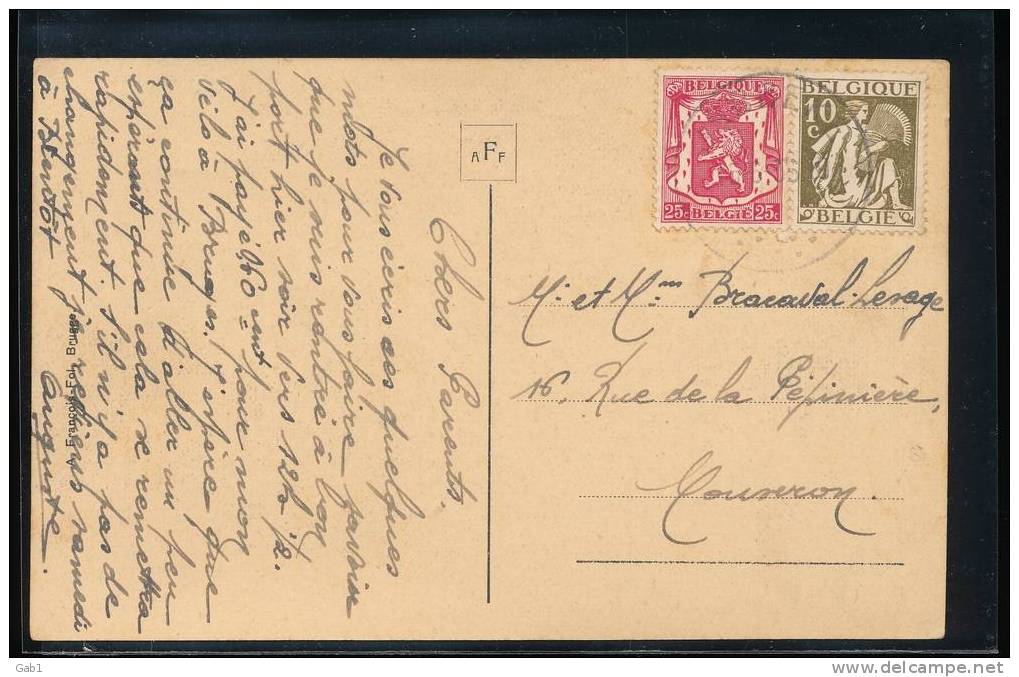 Chers Parents.
Je vous écris ces quelques
mots pour vous faire savoir
que je suis rentré à bon
port hier soir vers 12h 1/2.
J'ai payé 0,60 cent pour mon
vélo à Bruges. J'espère que
ça continue d'aller un peu
espérant que cela se remettra
rapidement. S'il n'y a pas de
changement je reviens samedi
à Bientôt
Auguste.
A. François-Fol, Brugge
A F F
BELGIQUE
25c BELGIË 25c
BELGIQUE
10
c
BELGIË
Mr et Mme Bracaval-Lesage
16, Rue de la Pépinière,
Mouscron.
Gab1
www.delcampe.net